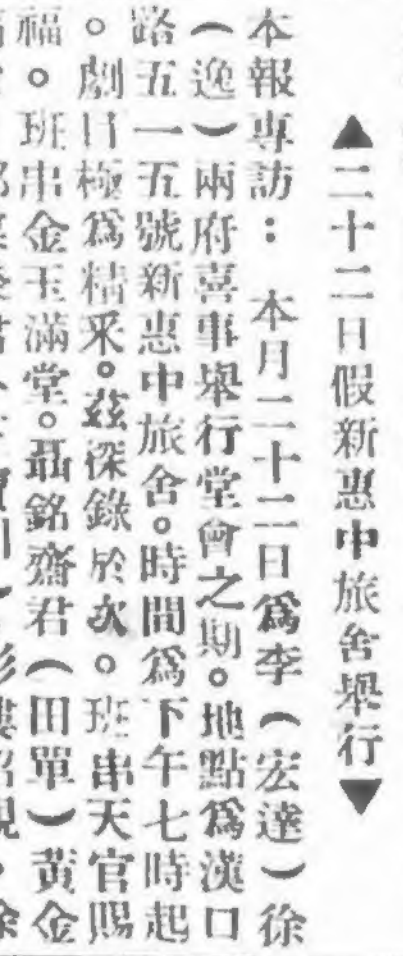 ▲二十二日假新惠中旅舍舉行▼
本報專訪：本月二十二日爲李（宏達）徐
（逸）兩府喜事舉行堂會之期。地點爲漢口
路五一五號新惠中旅舍。時間爲下午七時起
。劇目極爲精采。茲深錄於次。班串天官賜
福。班串金玉滿堂。聶銘齋君（田單）黃金